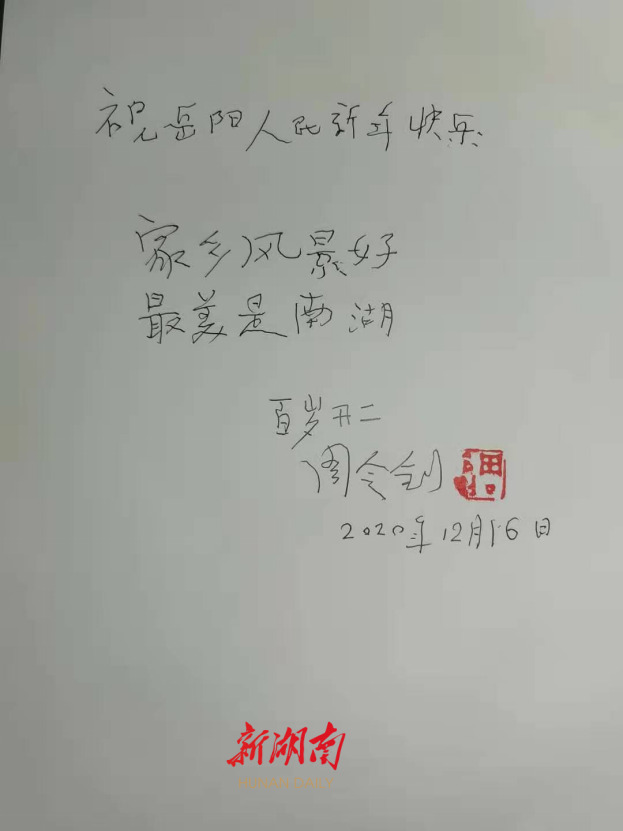 祝岳阳人民新年快乐
家乡风景好
最美是南湖
百岁开二
周令钊
2020年12月16日
新湖南